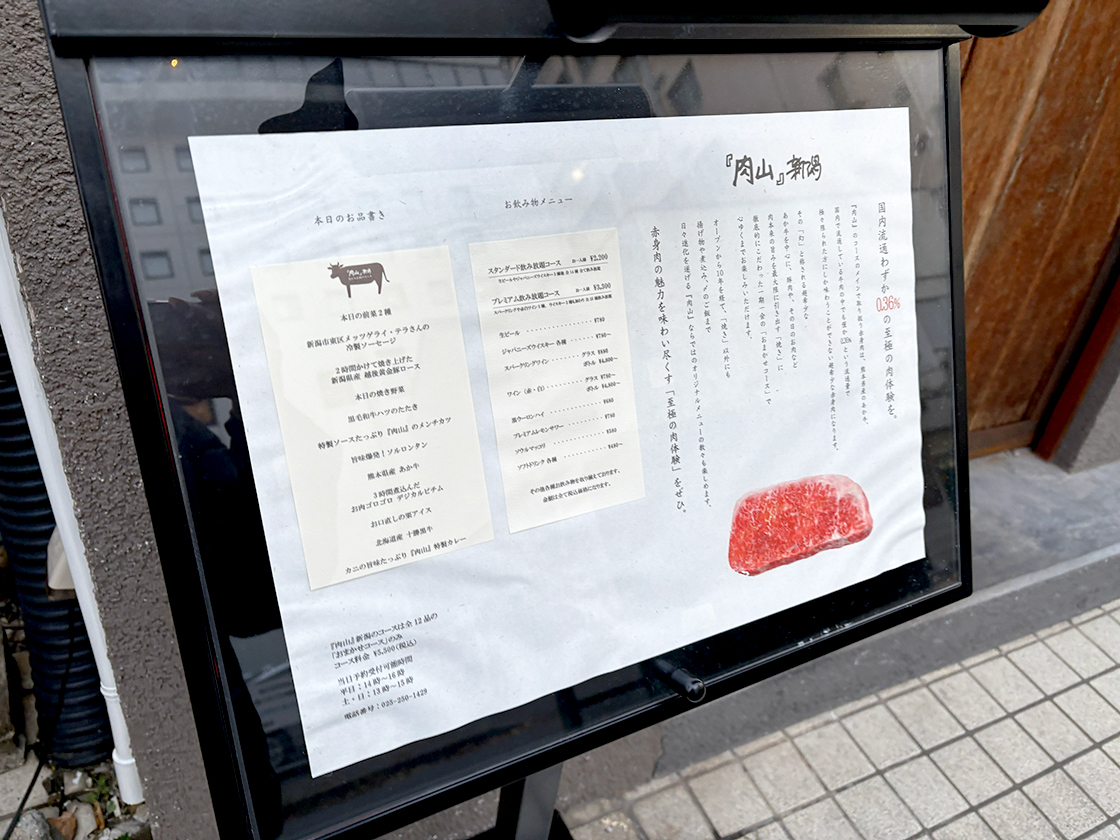 『肉山』新潟
国内流通わずか0.36%の至極の肉体験を。
『肉山』のコースのメインで取り扱う赤身肉は、熊本県産のあか牛。
国内で流通している牛肉の中でも僅か0.36%という流通量で
極々限られた方にしか味わうことができない超希少な赤身肉になります。
その「幻」と称される超希少な
あか牛を中心に、豚肉や、その日のお肉など
肉本来の旨みを最大限に引き出す「焼き」に
徹底的にこだわった一期一会の「おまかせコース」で
心ゆくまでお楽しみいただけます。
オープンから10年を経て、「焼き」以外にも
揚げ物や煮込み、〆のご飯まで
日々進化を遂げる『肉山』ならではのオリジナルメニューの数々も楽しめます。
赤身肉の魅力を味わい尽くす「至極の肉体験」をぜひ。
お飲み物メニュー
スタンダード飲み放題コース お一人様 ¥2,200
プレミアム飲み放題コース お一人様 ¥3,300
生ビール ¥780
ジャパニーズウイスキー 各種 ¥780
スパークリングワイン グラス ¥880
ボトル ¥4,800〜
ワイン(赤・白) グラス ¥780〜
ボトル ¥4,800〜
黒ウーロンハイ ¥680
プレミアムレモンサワー ¥780
ソウルマッコリ ¥580
ソフトドリンク 各種 ¥480〜
その他各種お飲み物を取り揃えております。
金額は全て税込価格になります。
本日のお品書き
『肉山』新潟
本日の前菜2種
新潟市東区メッツゲライ・テラさんの
冷製ソーセージ
2時間かけて焼き上げた
新潟県産 越後黄金豚ロース
本日の焼き野菜
黒毛和牛ハツのたたき
特製ソースたっぷり『肉山』のメンチカツ
旨味爆発!ソルロンタン
熊本県産 あか牛
3時間煮込んだ
お肉ゴロゴロ デジカルビチム
お口直しの栗アイス
北海道産 十勝黒牛
カニの旨味たっぷり『肉山』特製カレー
『肉山』新潟のコースは全12品の
「おまかせコース」のみ
コース料金 ¥5,500(税込)
当日予約受付可能時間
平日:14時〜16時
土・日:13時〜15時
電話番号:025-250-1429